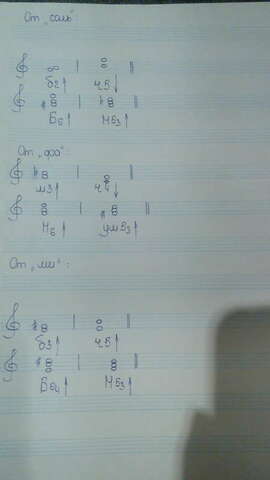 От „соль“:
б2↑ ч.5↓
Б6↑ М53↑
От „фа“:
м3↑ ч.4↓
М6↑ ум53↑
От „ми“:
б3↑ ч.5↑
Б64↑ М53↑